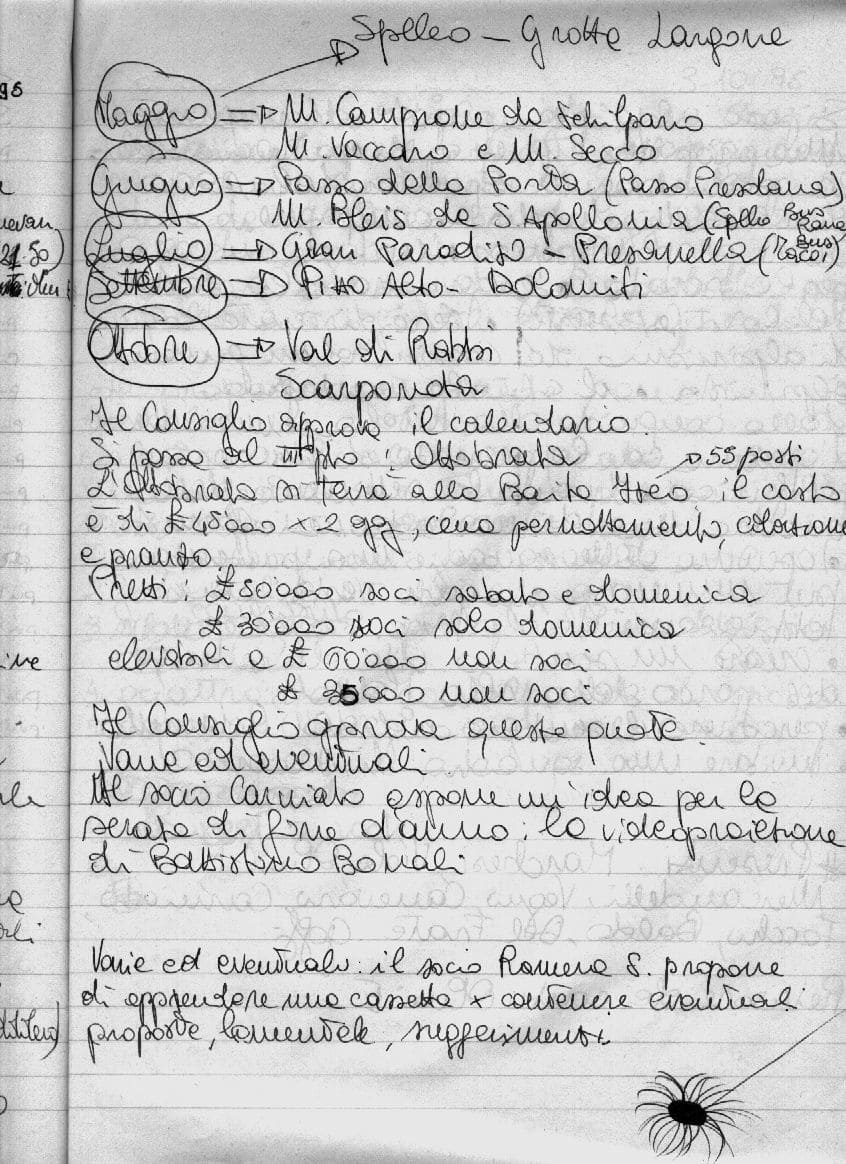 Speleo - Grotte Largone
Maggio => M. Campione da Schilpario
M. Vaccaro e M. Secco
Giugno => Passo della Porta (Passo Presolana)
M. Bleis da S. Apollonia (Speleo Bus Rana
Luglio => Gran Paradiso - Presanella (Bus Tacoi)
Settembre => Pizzo Alto - Dolomiti
Ottobre => Val di Rabbi
Scarponata
Il Consiglio approva il calendario.
Si passa al III° pto: Ottobrata
L'Ottobrata si terrà alla Baita Iseo, il costo → 55 posti
è di £ 45'000 x 2 gg, cena pernottamento, colazione
e pranzo.
Prezzi: £ 50'000 soci sabato e domenica
£ 30'000 soci solo domenica
elevabili a £ 60'000 non soci
£ 35'000 non soci
Il Consiglio approva queste quote.
Varie ed eventuali.
Il socio Carniato espone un'idea per la
serata di fine d'anno: la videoproiezione
di Battistino Bonali
Varie ed eventuali: il socio Romera S. propone
di appendere una cassetta x contenere eventuali
proposte, lamentele, suggerimenti.